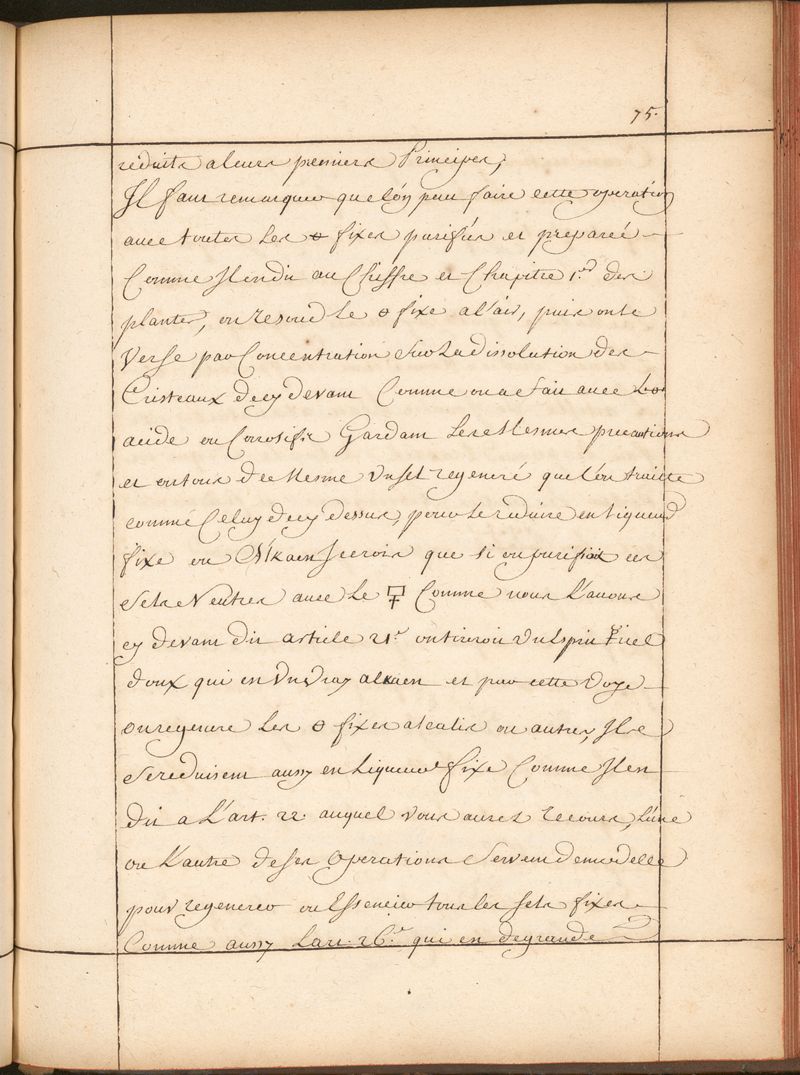 75.
reduits a leurs premiers Principes,
Il faut remarquer que l'on peu faire cette operation
avec toutes les 🜔 fixes purifiés et preparéé
Comme Il en dit au Chiffre et Chapitre 1.er des
plantes, on resoud le 🜔 fixe a l'air, puis on le
Verse par Concentration sur la dissolution des
Cristeaux de cy devant Comme on a fait avec
acide ou Corrosifs Gardant les Mesmes precautions
et on tour de Mesme Un sel regeneré que l'on traitte
comme Celuy de cy dessus, pour le reduire en liqueur
fixe ou Alkaen Je crois que si on purifioit ces
sels Neutres avec le Comme nous l'avons
cy devant dit article 21.e on tireroit Un Esprit
doux qui en Un Vray alkaen et par cette Voye
on regenere les 🜔 fixes alcalis ou autres, Ils
se reduisent aussy en liqueur fixe Comme Il en
dit a L'art. 22 auquel vous aurez recours, L'une
ou L'autre de ses Operations Servent de modelle
pour regenerer ou Essencier tous les sels fixes
Comme aussy Lart. 26.e qui en de grande